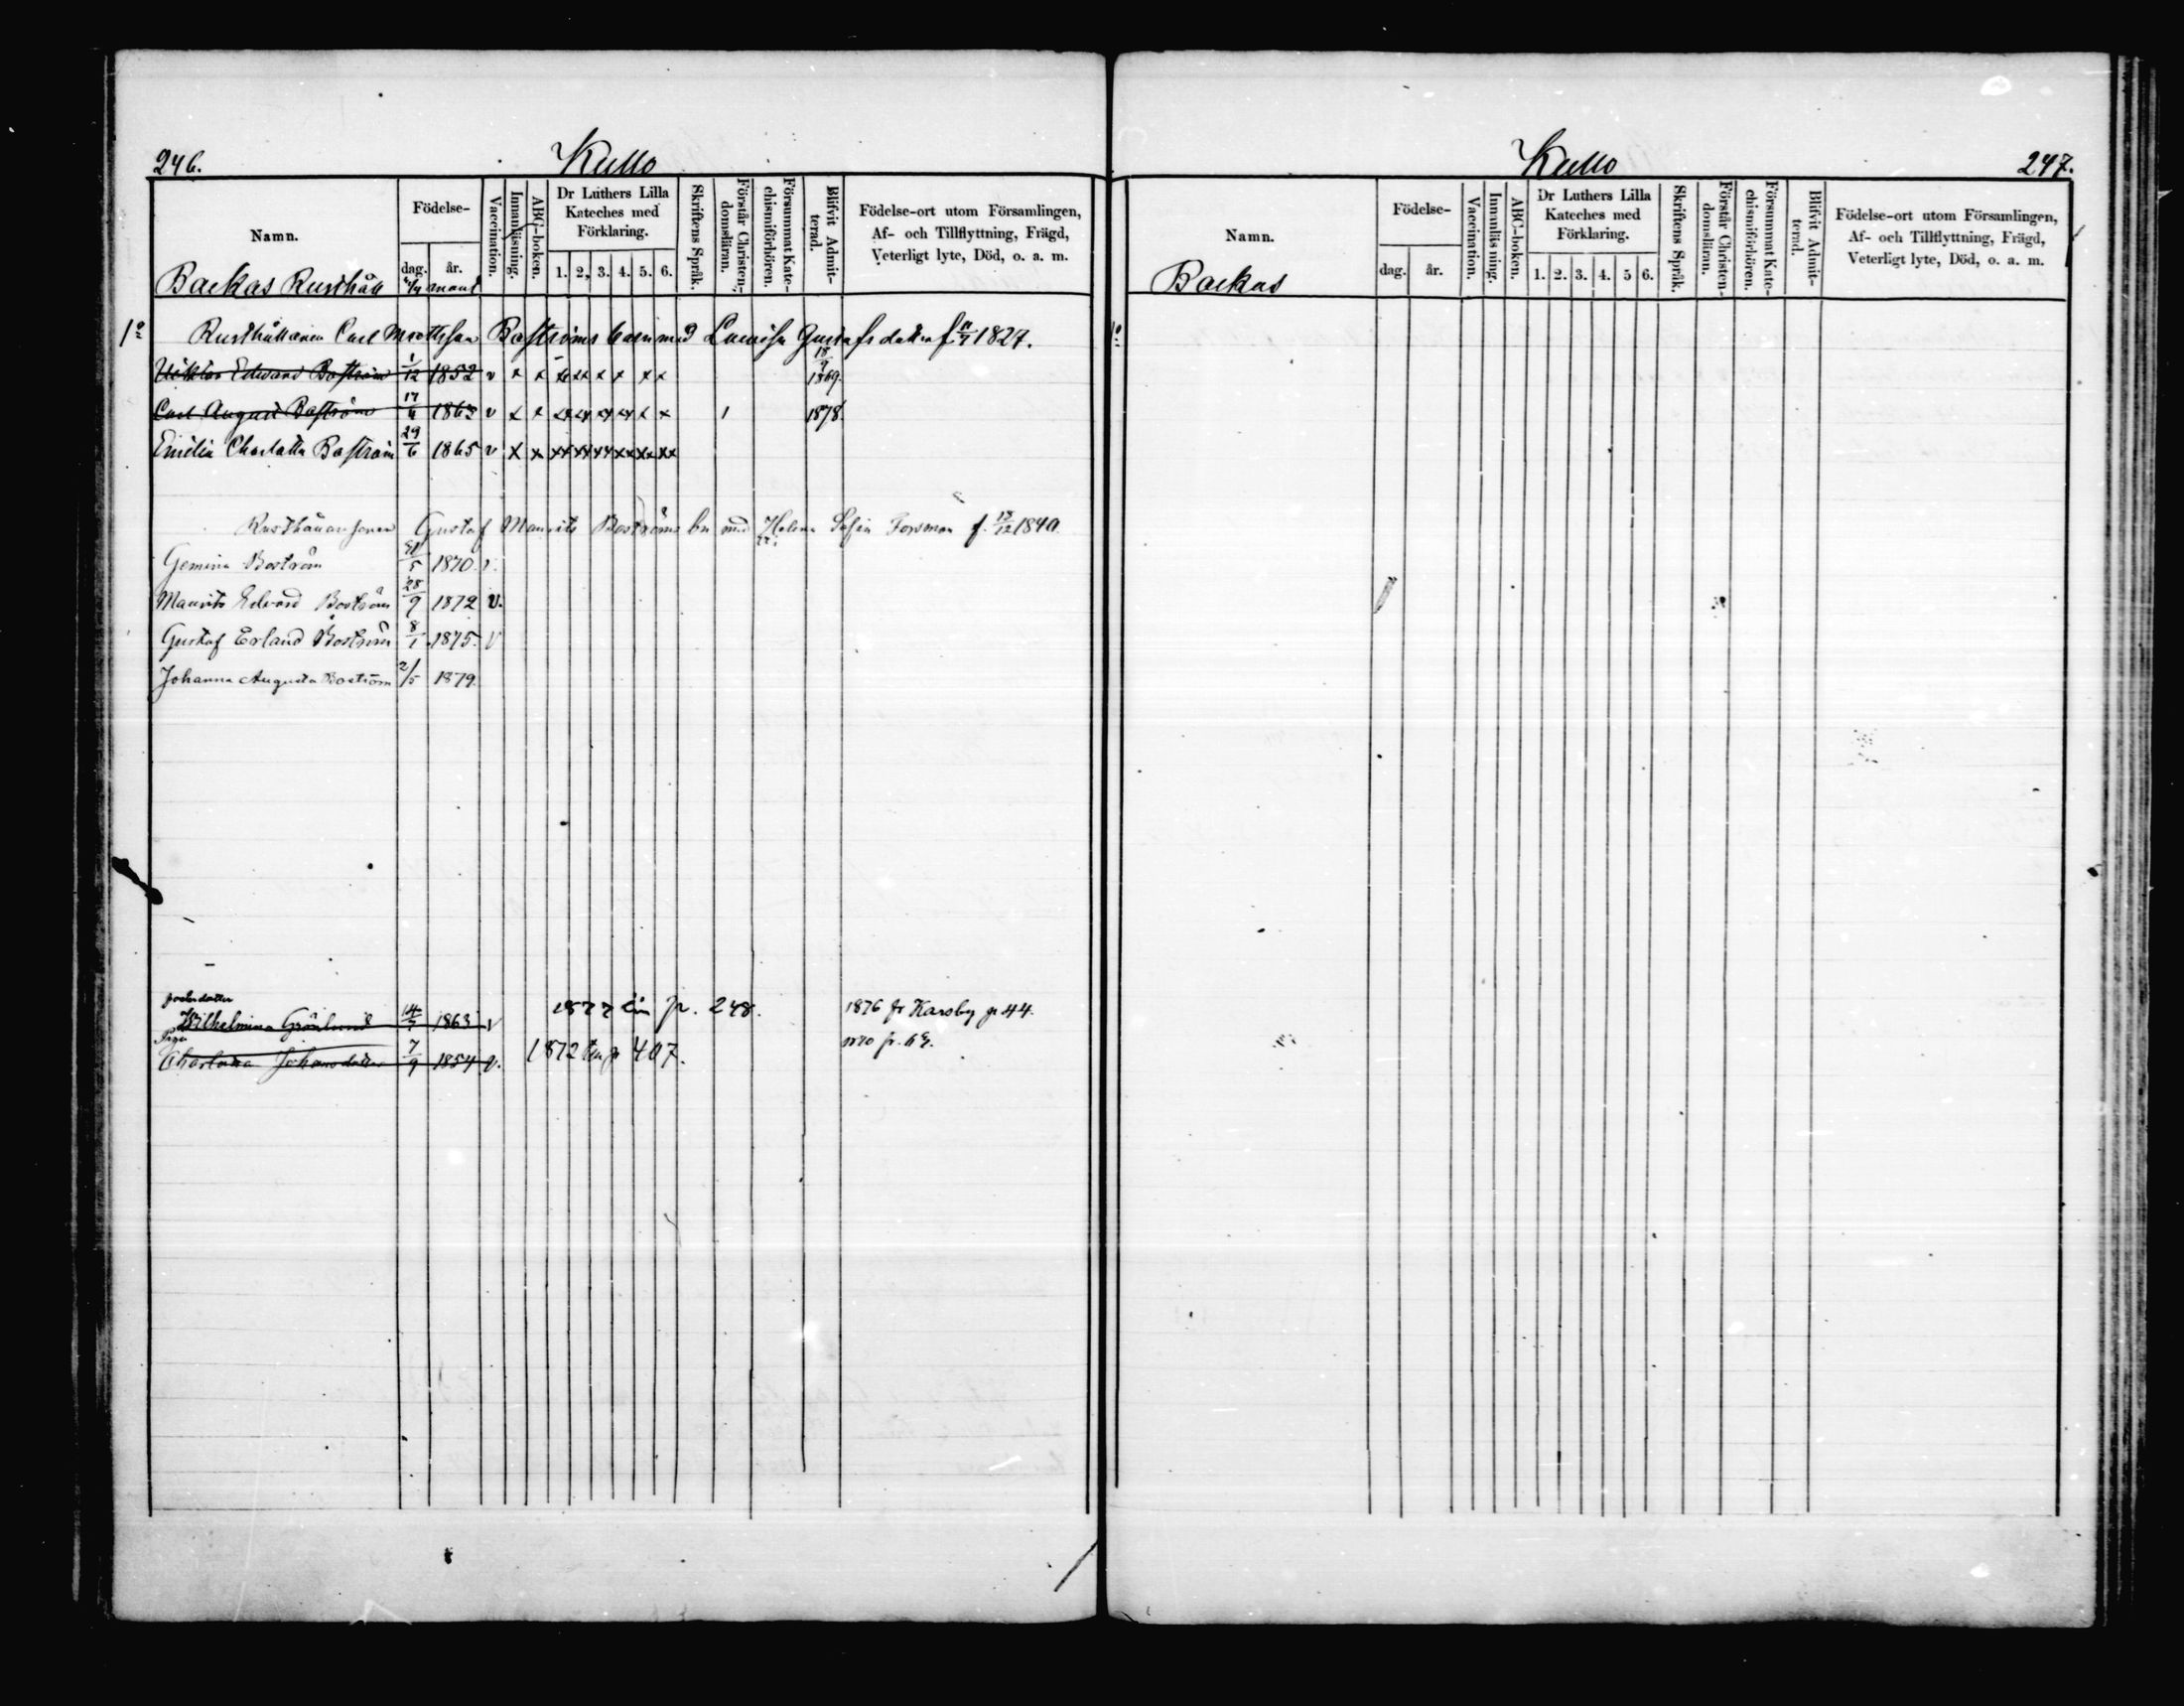 246.
Kullo
Namn.
Födelse-
dag.
år.
Vaccination.
Innanläsning.
ABC-boken.
Dr Luthers Lilla
Kateches med
Förklaring.
1. 2. 3. 4. 5. 6.
Skriftens Språk.
Förstår Christen-
domsläran.
Försummat Kate-
chismiförhören.
Blifvit Admit-
terad.
Födelse-ort utom Församlingen,
Af- och Tillflyttning, Frägd,
Veterligt lyte, Död, o. a. m.
Backas Rusthåll
1o Rusthållaren Carl Mattsson Boströms barn med Lovisa Gustafsdotter f. 11/7 1827.
Viktor Edvard Boström 1/12 1852 v x x 1869.
Carl August Boström 17/6 1863 v x x 1 1878.
Emelia Charlotta Boström 29/6 1865 v x x xx xx xx xx xx xx
Rusthållaresonen Gustaf Maurits Boströms bn med Helena Sofia Forsman f. 15/12 1840.
Gemina Boström 31/5 1870. v.
Maurits Edvard Boström 28/9 1872 v.
Gustaf Erland Boström 8/1 1875. v
Johanna Augusta Boström 2/5 1879.
fosterdotter
Wilhelmina Grönlund 14/7 1863 v 1877 p. 248. 1876 fr Karsby p 44.
Piga
Charlotta Johansdotter 7/9 1854 v. 1872 p 407. 1870 p.
Kullo
247.
Namn.
Födelse-
dag.
år.
Vaccination.
Innanläsning.
ABC-boken.
Dr Luthers Lilla
Kateches med
Förklaring.
1. 2. 3. 4. 5 6.
Skriftens Språk.
Förstår Christen-
domsläran.
Försummat Kate-
chismiförhören.
Blifvit Admit-
terad.
Födelse-ort utom Församlingen,
Af- och Tillflyttning, Frägd,
Veterligt lyte, Död, o. a. m.
Backas